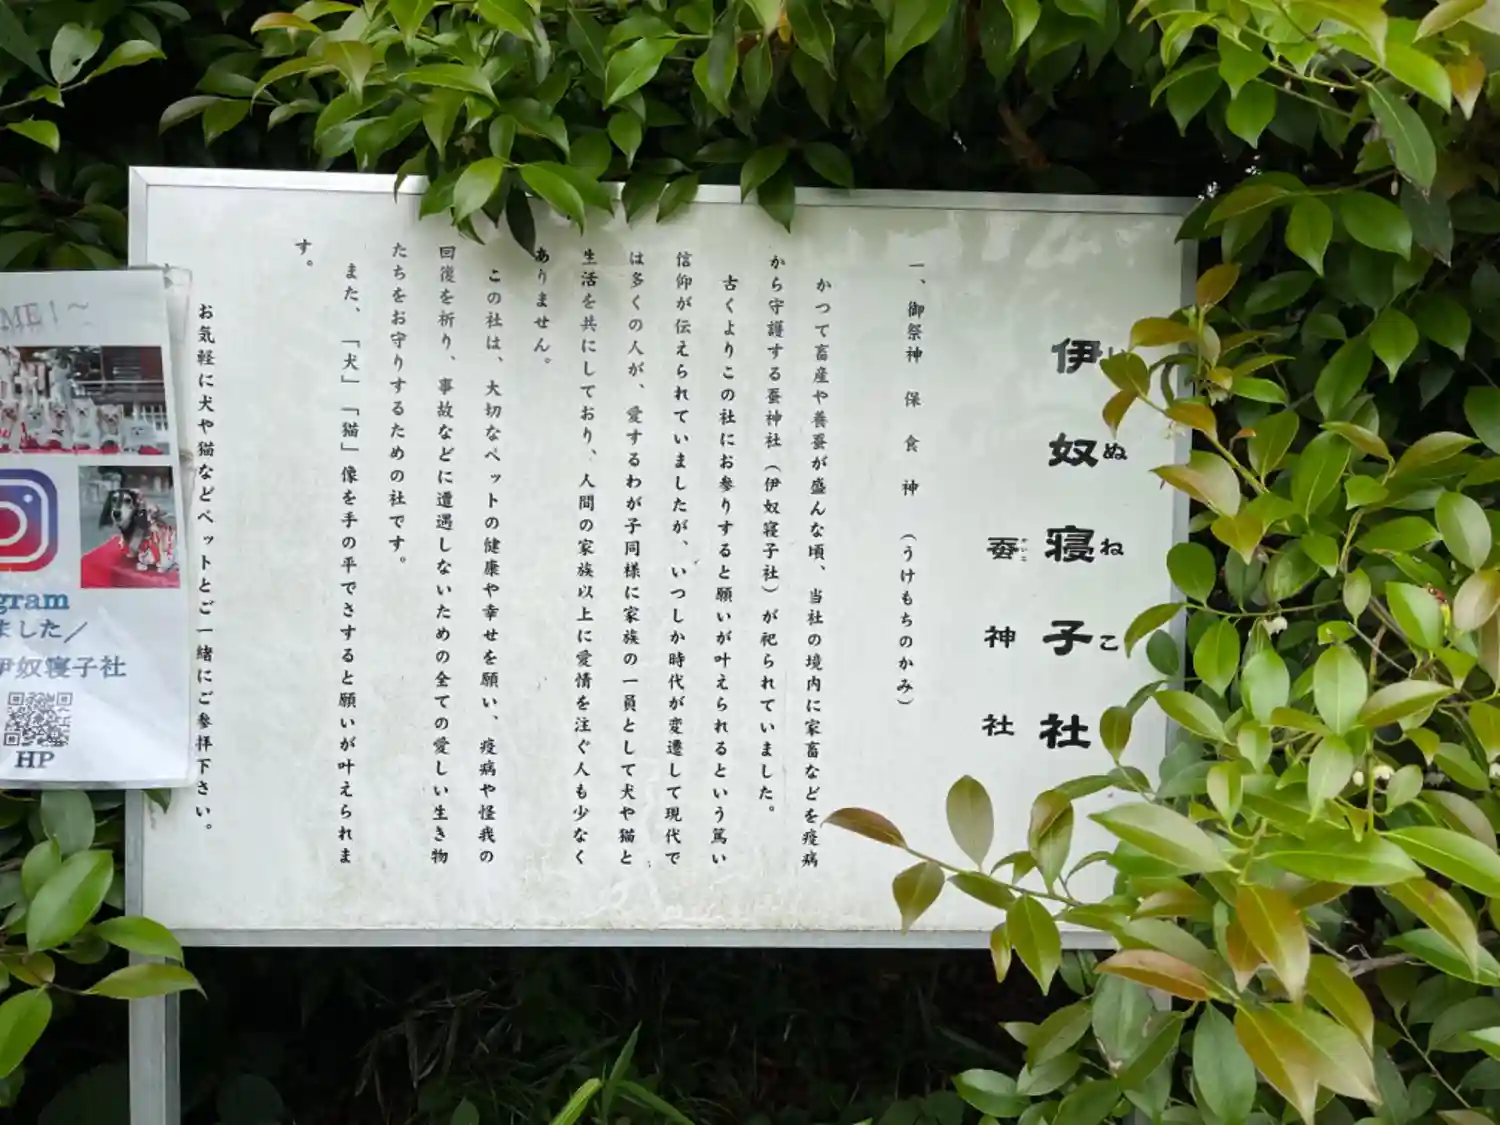 伊奴寝子社
いぬねこ
蚕神社
かいこ
一、御祭神 保食神 (うけもちのかみ)
かつて畜産や養蚕が盛んな頃、当社の境内に家畜などを疫病
から守護する蚕神社(伊奴寝子社)が祀られていました。
古くよりこの社にお参りすると願いが叶えられるという篤い
信仰が伝えられていましたが、いつしか時代が変遷して現代で
は多くの人が、愛するわが子同様に家族の一員として犬や猫と
生活を共にしており、人間の家族以上に愛情を注ぐ人も少なく
ありません。
この社は、大切なペットの健康や幸せを願い、疫病や怪我の
回復を祈り、事故などに遭遇しないための全ての愛しい生き物
たちをお守りするための社です。
また、「犬」「猫」像を手の平でさすると願いが叶えられま
す。
お気軽に犬や猫などペットとご一緒にご参拝下さい。
ME!~
gram
ました/
伊奴寝子社
HP